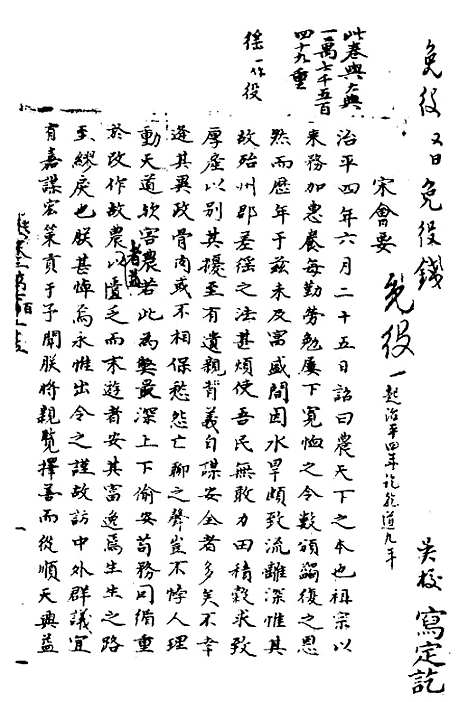 免役 又曰免役錢
吳校 寫定訖
宋會要
免役 一 起治平四年訖乾道九年
此卷與大典
一萬七千五百
四十九重
徭一作役
治平四年六月二十五日詔曰農天下之本也祖宗以
來務加惠養每勤勞勉屢下寬恤之令數頒蠲復之恩
然而歷年于茲未及富盛間因水旱頗致流離深惟其
故殆州郡差徭之法甚煩使吾民無敢力田積穀求致
厚產以別其擾至有遺親背義自謀安全者多矣不幸
逢其異政骨肉或不相保愁怨亡聊之聲豈不悖人理
動天道歟害農若此為弊最深上下偷安苟務因循重
者蓋
於改作故農以遺乏而末遊者安其富逸焉生生之路
至繆戾也朕甚悼焉永惟出令之謹故訪中外群議宜
有嘉謀宏策貢于予聞朕將親覽擇善而從順天興益